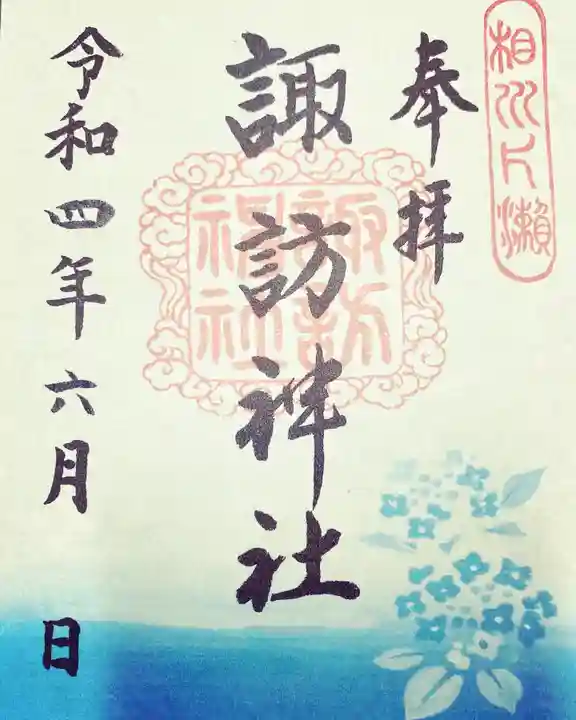 相州片瀬
奉拝
諏訪神社
諏訪神社
令和四年六月 日